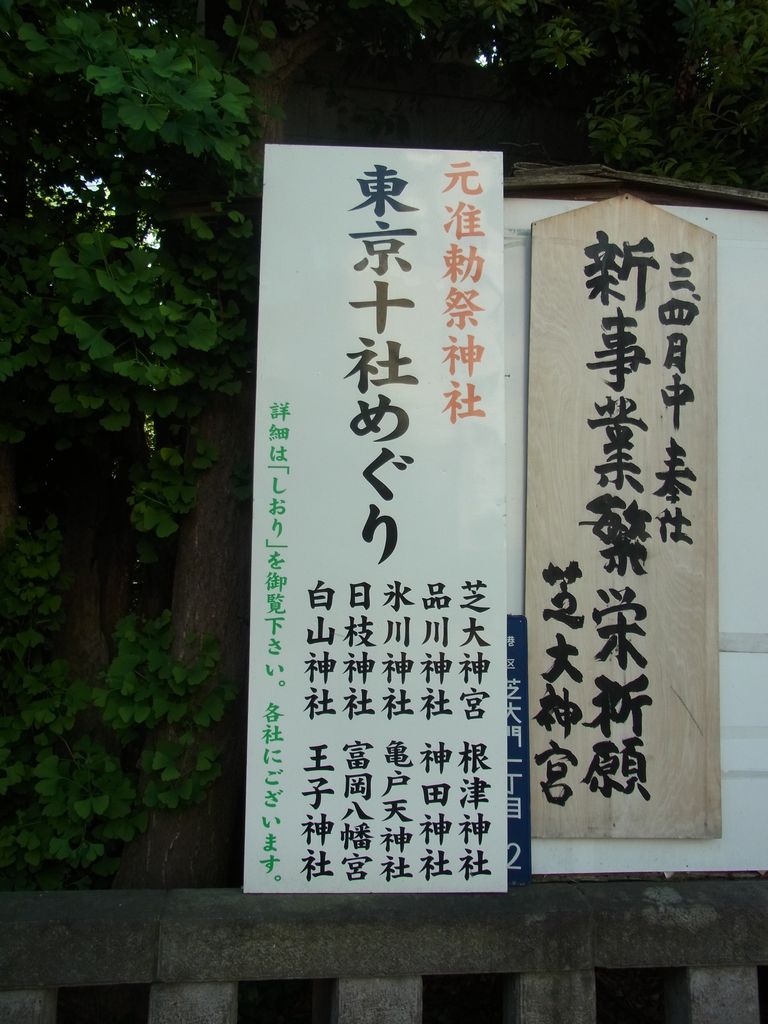 三、四月中 奉仕
新事業繁栄祈願
芝大神宮
元准勅祭神社
東京十社めぐり
芝大神宮 根津神社
品川神社 神田神社
氷川神社 亀戸天神社
日枝神社 富岡八幡宮
白山神社 王子神社
詳細は「しおり」を御覧下さい。 各社にございます。
港区 芝大門一丁目 2